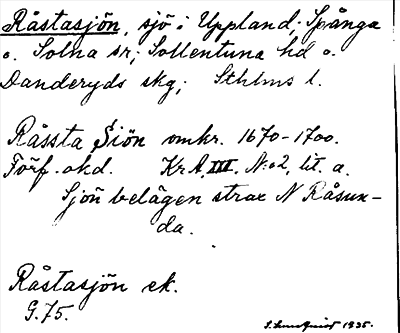 Råstasjön, sjö i Uppland; Spånga
o. Solna sr; Sollentuna hd o.
Danderyds skg; Sthlms l.
Råssta Siön omkr. 1670-1700.
Förf. okd. KrA, III, N:o2, lit. a.
Sjön belägen strax N Råsun-
da.
Råstasjön ek.
G.75.
1935.